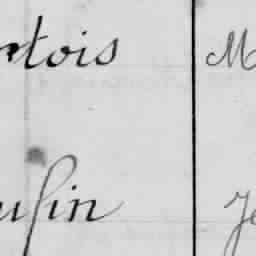 ntois M
usin Je